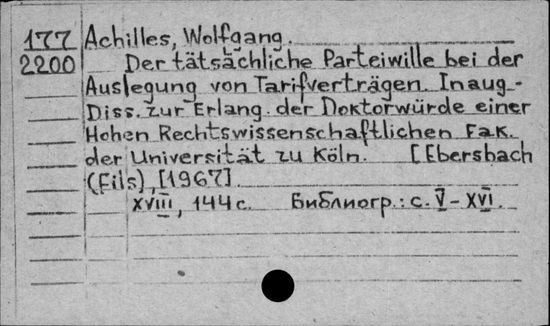 177 Achilles, Wolfgang.
2200 Der tätsächliche Parteiwille bei der
Auslegung von Tarifverträgen. Inaug.-
Diss. zur Erlang. der Doktorwürde einer
Hohen Rechtswissenschaftlichen Fak.
der Universität zu Köln. [Ebersbach
(Fils), [1967].
XVIII, 144 с. Библиогр.: с. V-XVI.